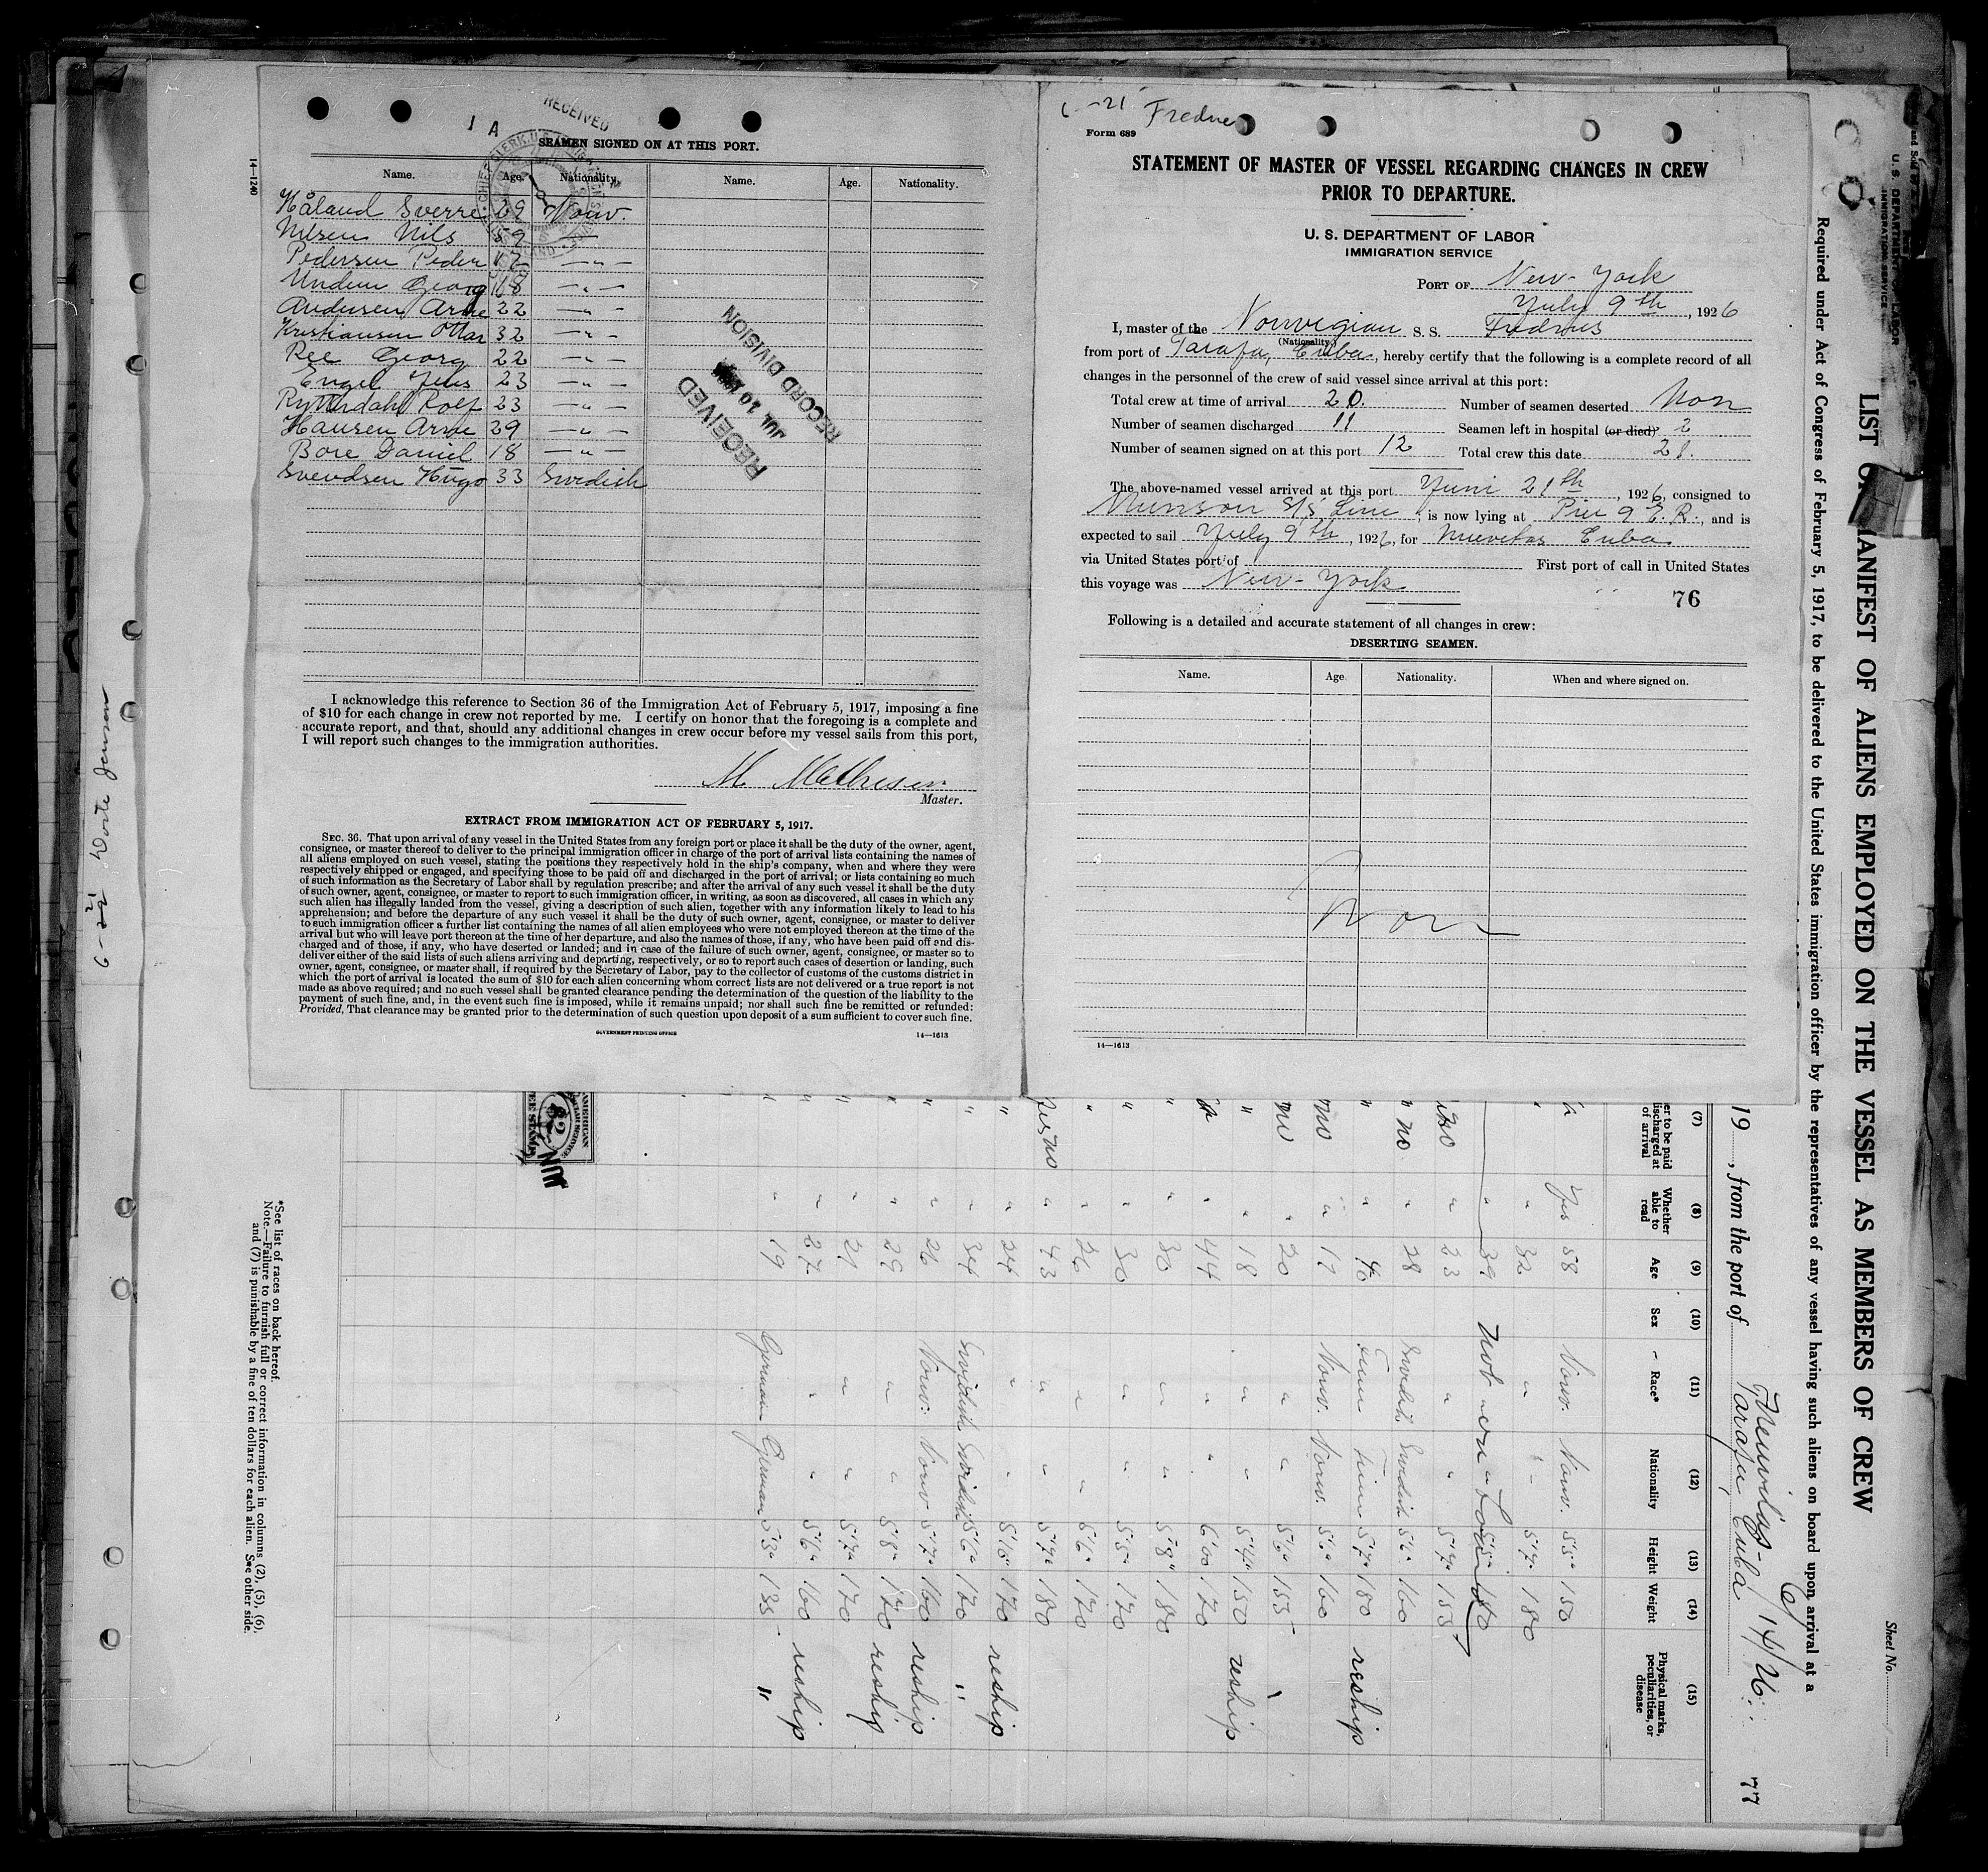 14-1240
I A
RECEIVED
SEAMEN SIGNED ON AT THIS PORT.
Name. Age. Nationality. Name. Age. Nationality.
Håland Sverre 29 Norw.
Nilsen Nils 59 — " —
Pedersen Peder 17 — " —
Undem Georg 18 — " —
Andersen Arne 22 — " —
Kristiansen Ottar 32 — " —
Ree Georg 22 — " —
Engel Jens 23 — " —
Rolf 23 — " —
Hansen Arne 29 — " —
Bore Daniel 18 — " —
Svendsen Hugo 33 Swedish
RECEIVED
JUL 10
RECORD DIVISION
I acknowledge this reference to Section 36 of the Immigration Act of February 5, 1917, imposing a fine
of $10 for each change in crew not reported by me. I certify on honor that the foregoing is a complete and
accurate report, and that, should any additional changes in crew occur before my vessel sails from this port,
I will report such changes to the immigration authorities.
M. Mathisen
Master.
EXTRACT FROM IMMIGRATION ACT OF FEBRUARY 5, 1917.
SEC. 36. That upon arrival of any vessel in the United States from any foreign port or place it shall be the duty of the owner, agent,
consignee, or master thereof to deliver to the principal immigration officer in charge of the port of arrival lists containing the names of
all aliens employed on such vessel, stating the positions they respectively hold in the ship's company, when and where they were
respectively shipped or engaged, and specifying those to be paid off and discharged in the port of arrival; or lists containing so much
of such information as the Secretary of Labor shall by regulation prescribe; and after the arrival of any such vessel it shall be the duty
of such owner, agent, consignee, or master to report to such immigration officer, in writing, as soon as discovered, all cases in which any
such alien has illegally landed from the vessel, giving a description of such alien, together with any information likely to lead to his
apprehension; and before the departure of any such vessel it shall be the duty of such owner, agent, consignee, or master to deliver
to such immigration officer a further list containing the names of all alien employees who were not employed thereon at the time of the
arrival but who will leave port thereon at the time of her departure, and also the names of those, if any, who have been paid off and dis-
charged and of those, if any, who have deserted or landed; and in case of the failure of such owner, agent, consignee, or master so to
deliver either of the said lists of such aliens arriving and departing, respectively, or so to report such cases of desertion or landing, such
owner, agent, consignee, or master shall, if required by the Secretary of Labor, pay to the collector of customs of the customs district in
which the port of arrival is located the sum of $10 for each alien concerning whom correct lists are not delivered or a true report is not
made as above required; and no such vessel shall be granted clearance pending the determination of the question of the liability to the
payment of such fine, and, in the event such fine is imposed, while it remains unpaid; nor shall such fine be remitted or refunded:
Provided, That clearance may be granted prior to the determination of such question upon deposit of a sum sufficient to cover such fine.
GOVERNMENT PRINTING OFFICE 14—1613
6-21 Frednes
Form 689
STATEMENT OF MASTER OF VESSEL REGARDING CHANGES IN CREW
PRIOR TO DEPARTURE.
U. S. DEPARTMENT OF LABOR
IMMIGRATION SERVICE
PORT OF New-York
July 9th, 1926
I, master of the Norwegian S. S. Frednes
(Nationality.)
from port of Tarafa, Cuba, hereby certify that the following is a complete record of all
changes in the personnel of the crew of said vessel since arrival at this port:
Total crew at time of arrival 20. Number of seamen deserted Non
Number of seamen discharged 11 Seamen left in hospital (or died) 2
Number of seamen signed on at this port 12 Total crew this date 21.
The above-named vessel arrived at this port Juni 21th, 1926, consigned to
Munson S/S Line, is now lying at Pier 9 E. R., and is
expected to sail July 9th, 1926, for Nuevitas Cuba
via United States port of First port of call in United States
this voyage was New-York
76
Following is a detailed and accurate statement of all changes in crew:
DESERTING SEAMEN.
Name. Age. Nationality. When and where signed on.
Non
14—1613
Sheet No.
LIST OR MANIFEST OF ALIENS EMPLOYED ON THE VESSEL AS MEMBERS OF CREW
U. S. DEPARTMENT OF LABOR
IMMIGRATION SERVICE
Required under Act of Congress of February 5, 1917, to be delivered to the United States immigration officer by the representatives of any vessel having such aliens on board upon arrival at a
19 , from the port of Tarafa, Cuba 77
(7) (8) (9) (10) (11) (12) (13) (14) (15)
er to be paid discharged at of arrival Whether able to read Age Sex Race* Nationality Height Weight Physical marks, peculiarities, or disease
" Yes 58 Norw. Norw. 5'5" 150
" 32 " " 5'7" 180
" 39 Not on board 5'5" 180
no " 23 " " 5'7" 155
" no " 28 Swedish Swedish 5'6" 160
" " 40 Finn Finn 5'7" 180 reship
no " 17 Norw. Norw. 5'6" 160
no " 20 " " 5'6" 155
" " 18 " " 5'4" 150 reship
" 44 " " 6'00 170
" " 30 " " 5'8" 180
" " 30 " " 5'5" 170
" " 26 " " 5'6" 170
Yes no " 43 " " 5'7" 180
" " 24 " " 5'6" 170 reship
" " 34 Swedish Swedish 5'6" 170 "
" " 26 Norw. Norw. 5'7" 160 reship
" " 29 " " 5'8" 170 reship
" " 21 " " 5'7" 170
" " 27 " " 5'6" 160 reship
" " 19 German German 5'3" 135 "
AMERICAN
FEE STAMP
JUN
*See list of races on back hereof.
Note.—Failure to furnish full or correct information in columns (2), (5), (6),
and (7) is punishable by a fine of ten dollars for each alien. See other side.